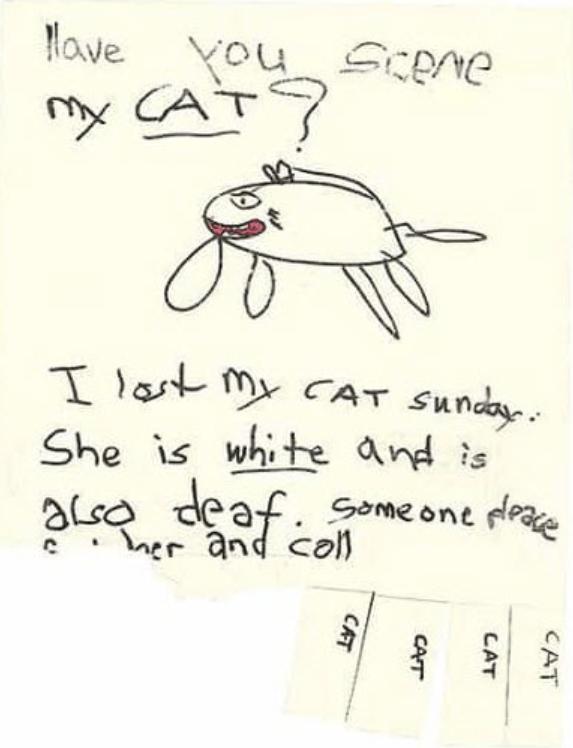 Have you scene
my CAT?
I lost my CAT sunday.
She is white and is
also deaf. someone please
her and call
CAT
CAT
CAT
CAT